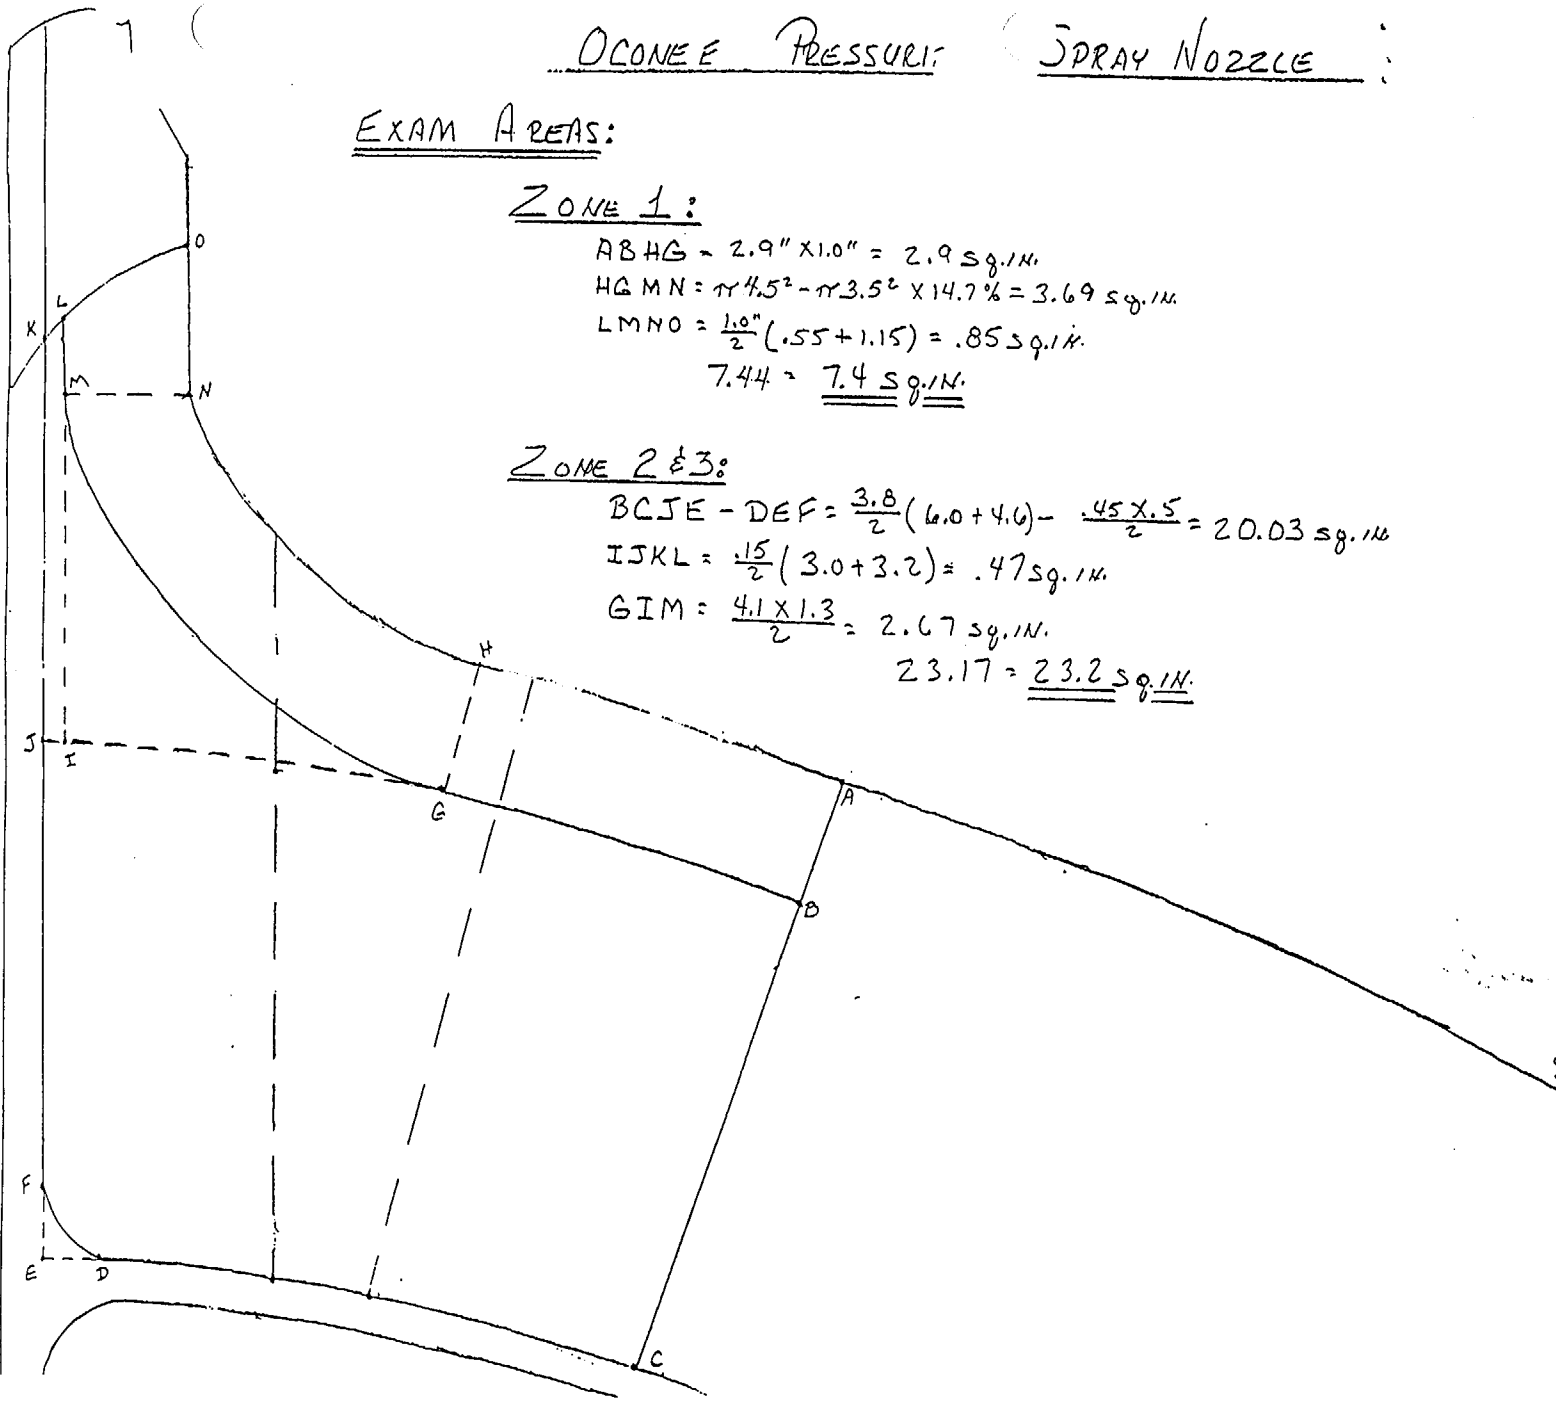 OCONEE PRESSURI: SPRAY NOZZLE
EXAM AREAS:
ZONE 1:
ABHG = 2.9" X1.0" = 2.9 sq.IN.
HGMN = π4.5² - π3.5² X 14.7% = 3.69 sq.IN.
LMNO = 1.0"/2 (.55 + 1.15) = .85 sq.IN.
7.44 = 7.4 sq.IN.
ZONE 2 & 3:
BCJE - DEF = 3.8/2 (6.0 + 4.6) - .45 X .5/2 = 20.03 sq.IN
IJKL = .15/2 (3.0 + 3.2) = .47 sq.IN.
GIM = 4.1 X 1.3/2 = 2.67 sq.IN.
23.17 = 23.2 sq.IN.
O
L
K
M
N
H
J
I
G
A
B
F
E
D
C